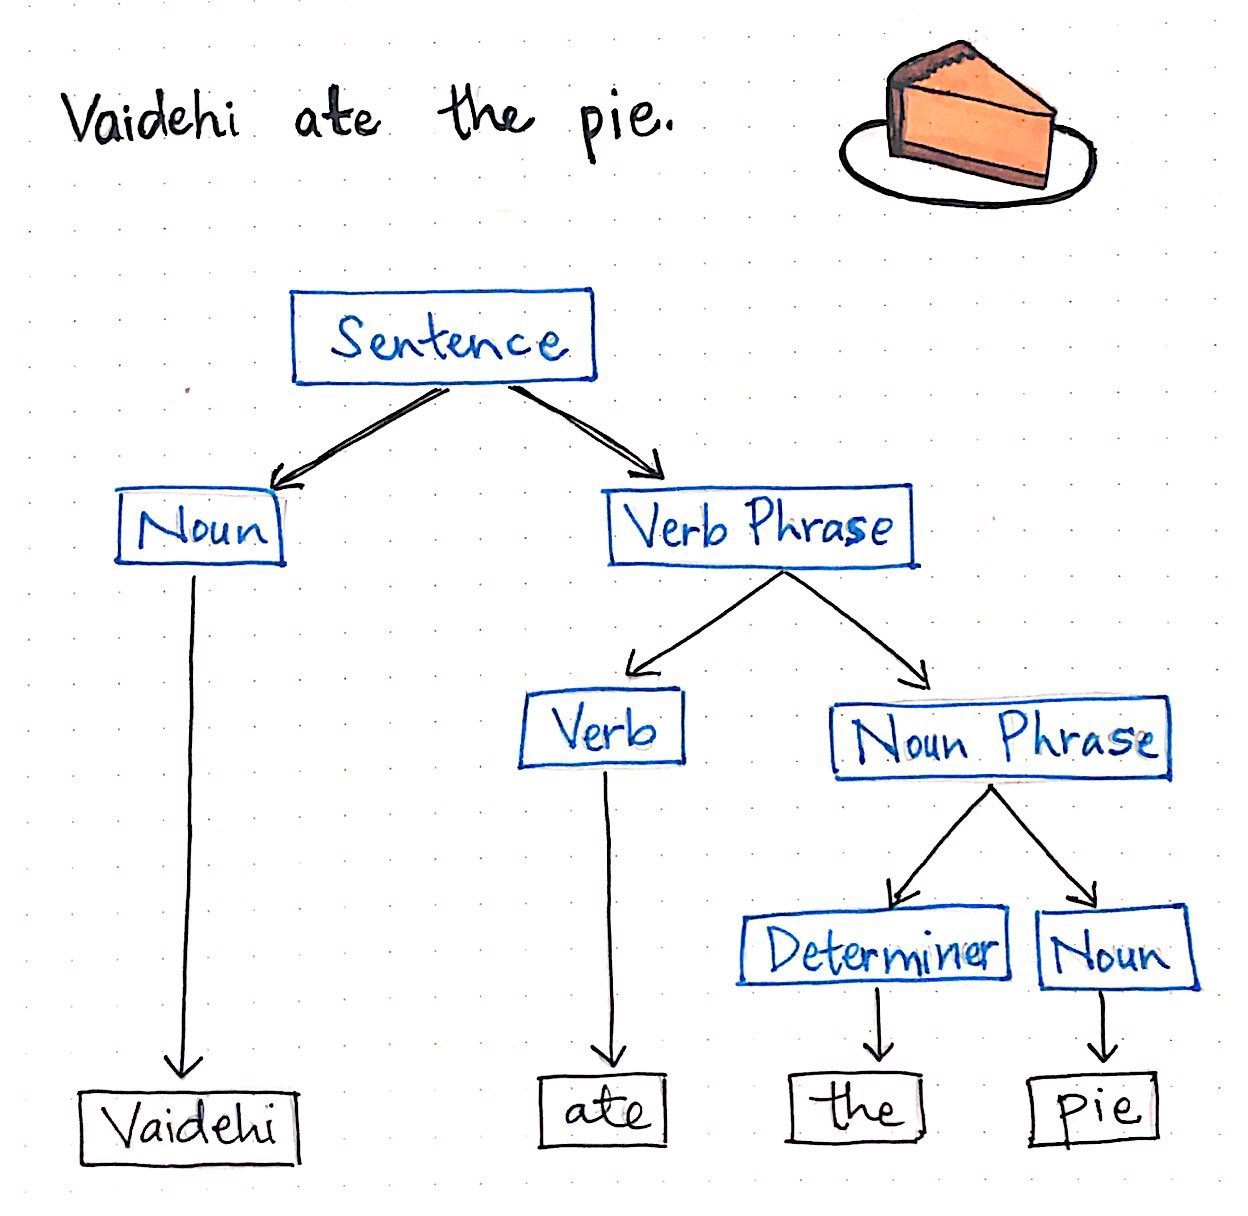 Vaidehi ate the pie.
Sentence
Noun
Verb Phrase
Verb
Noun Phrase
Determiner
Noun
Vaidehi
ate
the
pie